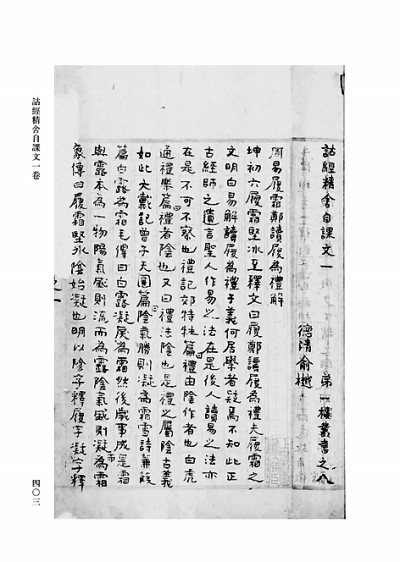 詁經精舍自課文一卷
詁經精舍自課文一
第一樓叢書之八
德清俞樾
周易履霜鄭讀履為禮解
坤初六履霜堅冰至釋文曰履鄭讀履為禮夫履霜之
文明白易解讀履為禮于義何居學者疑焉不知此正
古經師之遺言聖人作易之法在是後人讀易之法亦
在是不可不察也禮記郊特牲篇禮由陰作者也白虎
通禮樂篇禮者陰也又曰禮法陰也是禮之屬陰古義
如此大戴記曾子天圓篇陰氣勝則凝為霜雪詩蒹葭
篇白露為霜毛傳曰白露凝戾為霜然後歲事成是霜
與露本為一物陽氣盛則流而為露陰氣盛則凝為霜
象傳曰履霜堅冰陰始凝也明以陰字釋履字凝字釋
四〇三